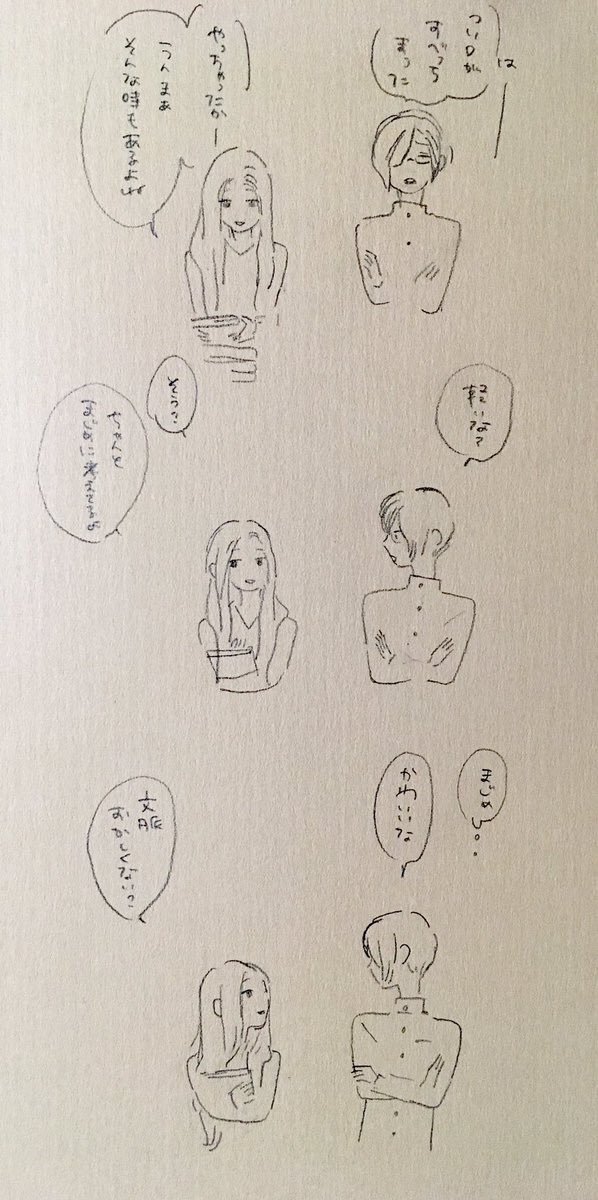 はー
つい口が
すべっち
まった
やっちゃったかー
うんまぁ
そんな時もあるよね
軽いな?
そう?
ちゃんと
まじめに
まじめし。。
かわいいな
文脈
おかしくない?